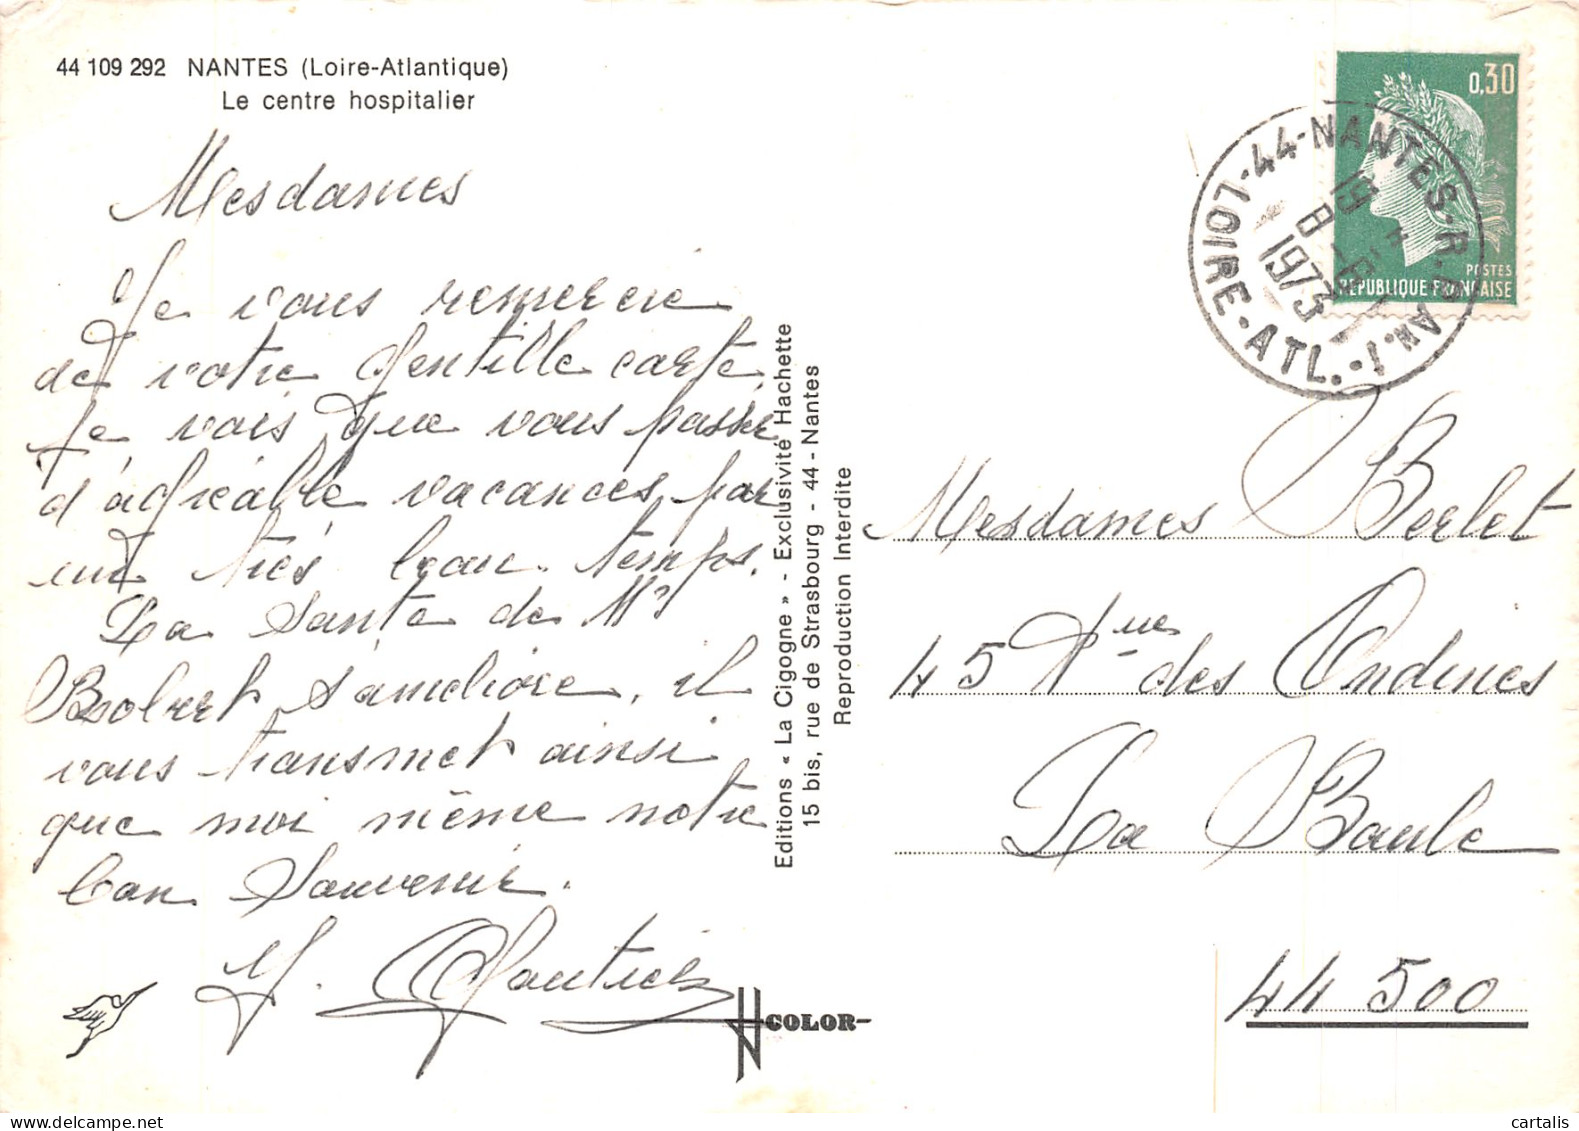 44 109 292 NANTES (Loire-Atlantique)
Le centre hospitalier
Mesdames
Je vous remercie
de votre gentille carte.
Je vois que vous passer
d'agréable vacances, par
un très beau temps.
La Santé de Mr
Robert s'améliore, il
vous transmet ainsi
que moi même notre
bon Souvenir.
Y. Gautier
Editions « La Cigogne » - Exclusivité Hachette
15 bis, rue de Strasbourg - 44 - Nantes
Reproduction Interdite
COLOR
0,30
POSTES
REPUBLIQUE FRANÇAISE
44-NANTES-R.P.
LOIRE-ATL.
19
8
1973
Mesdames Berlet
45 Aue des Ondines
La Baule
44 500
cartalis